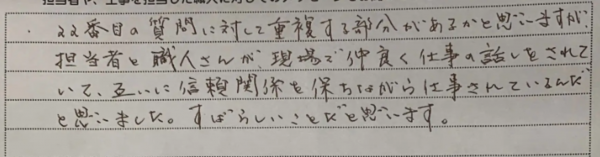 ・22番目の質問に対して重複する部分があるかと思いますが、
担当者と職人さんが、現場で仲良く仕事の話しをされて
いて、互いに信頼関係を保ちながら仕事されているんだ
と思いました。すばらしいことだと思います。